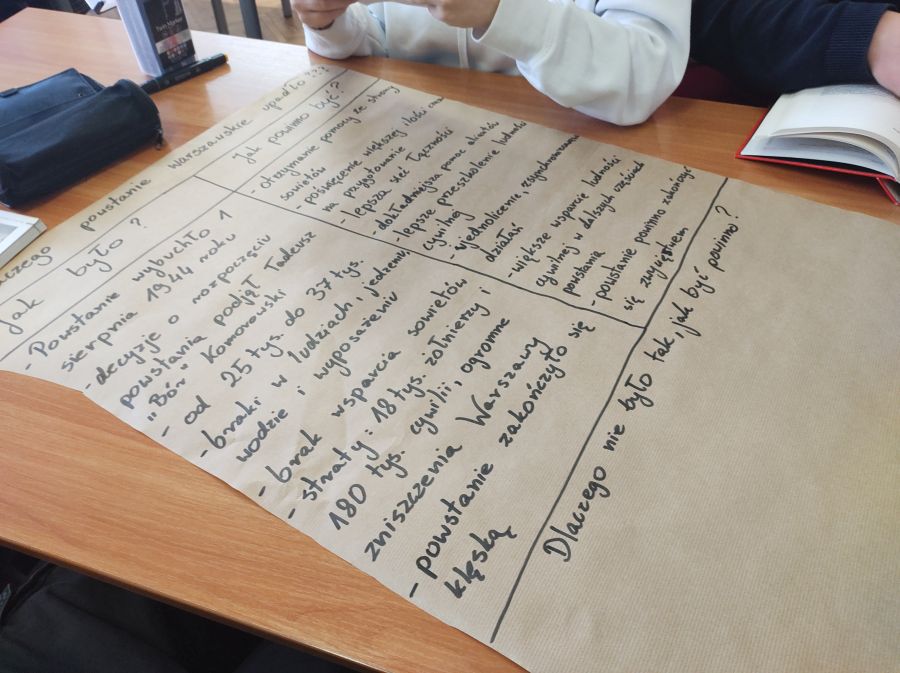 Dlaczego powstanie warszawskie upadło???
Jak było?
- Powstanie wybuchło 1
sierpnia 1944 roku
- decyzje o rozpoczęciu
powstania podjął Tadeusz
"Bór" Komorowski
- od 25 tys. do 37 tys.
- braki w ludziach, jedzeniu
wodzie i wyposażeniu
- brak wsparcia sowietów
- straty: 18 tys. żołnierzy i
180 tys. cywilii, ogromne
zniszczenia Warszawy
- powstanie zakończyło się
klęską
Jak powinno być?
- otrzymanie pomocy ze strony
sowietów
- poświęcenie większej ilości czasu
na przygotowanie
- lepsza sieć łączności
- dokładniejsza pomoc aliantów
- lepsze przeszkolenie ludności
cywilnej
- ujednolicenie, zsynchronizowanie
działań
- większe wsparcie ludności
cywilnej w dalszych częściach
powstania
- powstanie powinno zakończyć
się zwycięstwem
Dlaczego nie było tak, jak być powinno?
Twin Marker